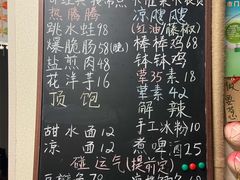 热腾腾
跳水蛙98
爆脆肠58(晚)
盐煎肉48
花洋芋16
顶饱
甜水面12
凉面12
凉飕飕
(红油/藤椒)
棒棒鸡68
钵钵鸡
荤35素18
解辣
手工冰粉10
煮啤酒25
碰运气(提前定)